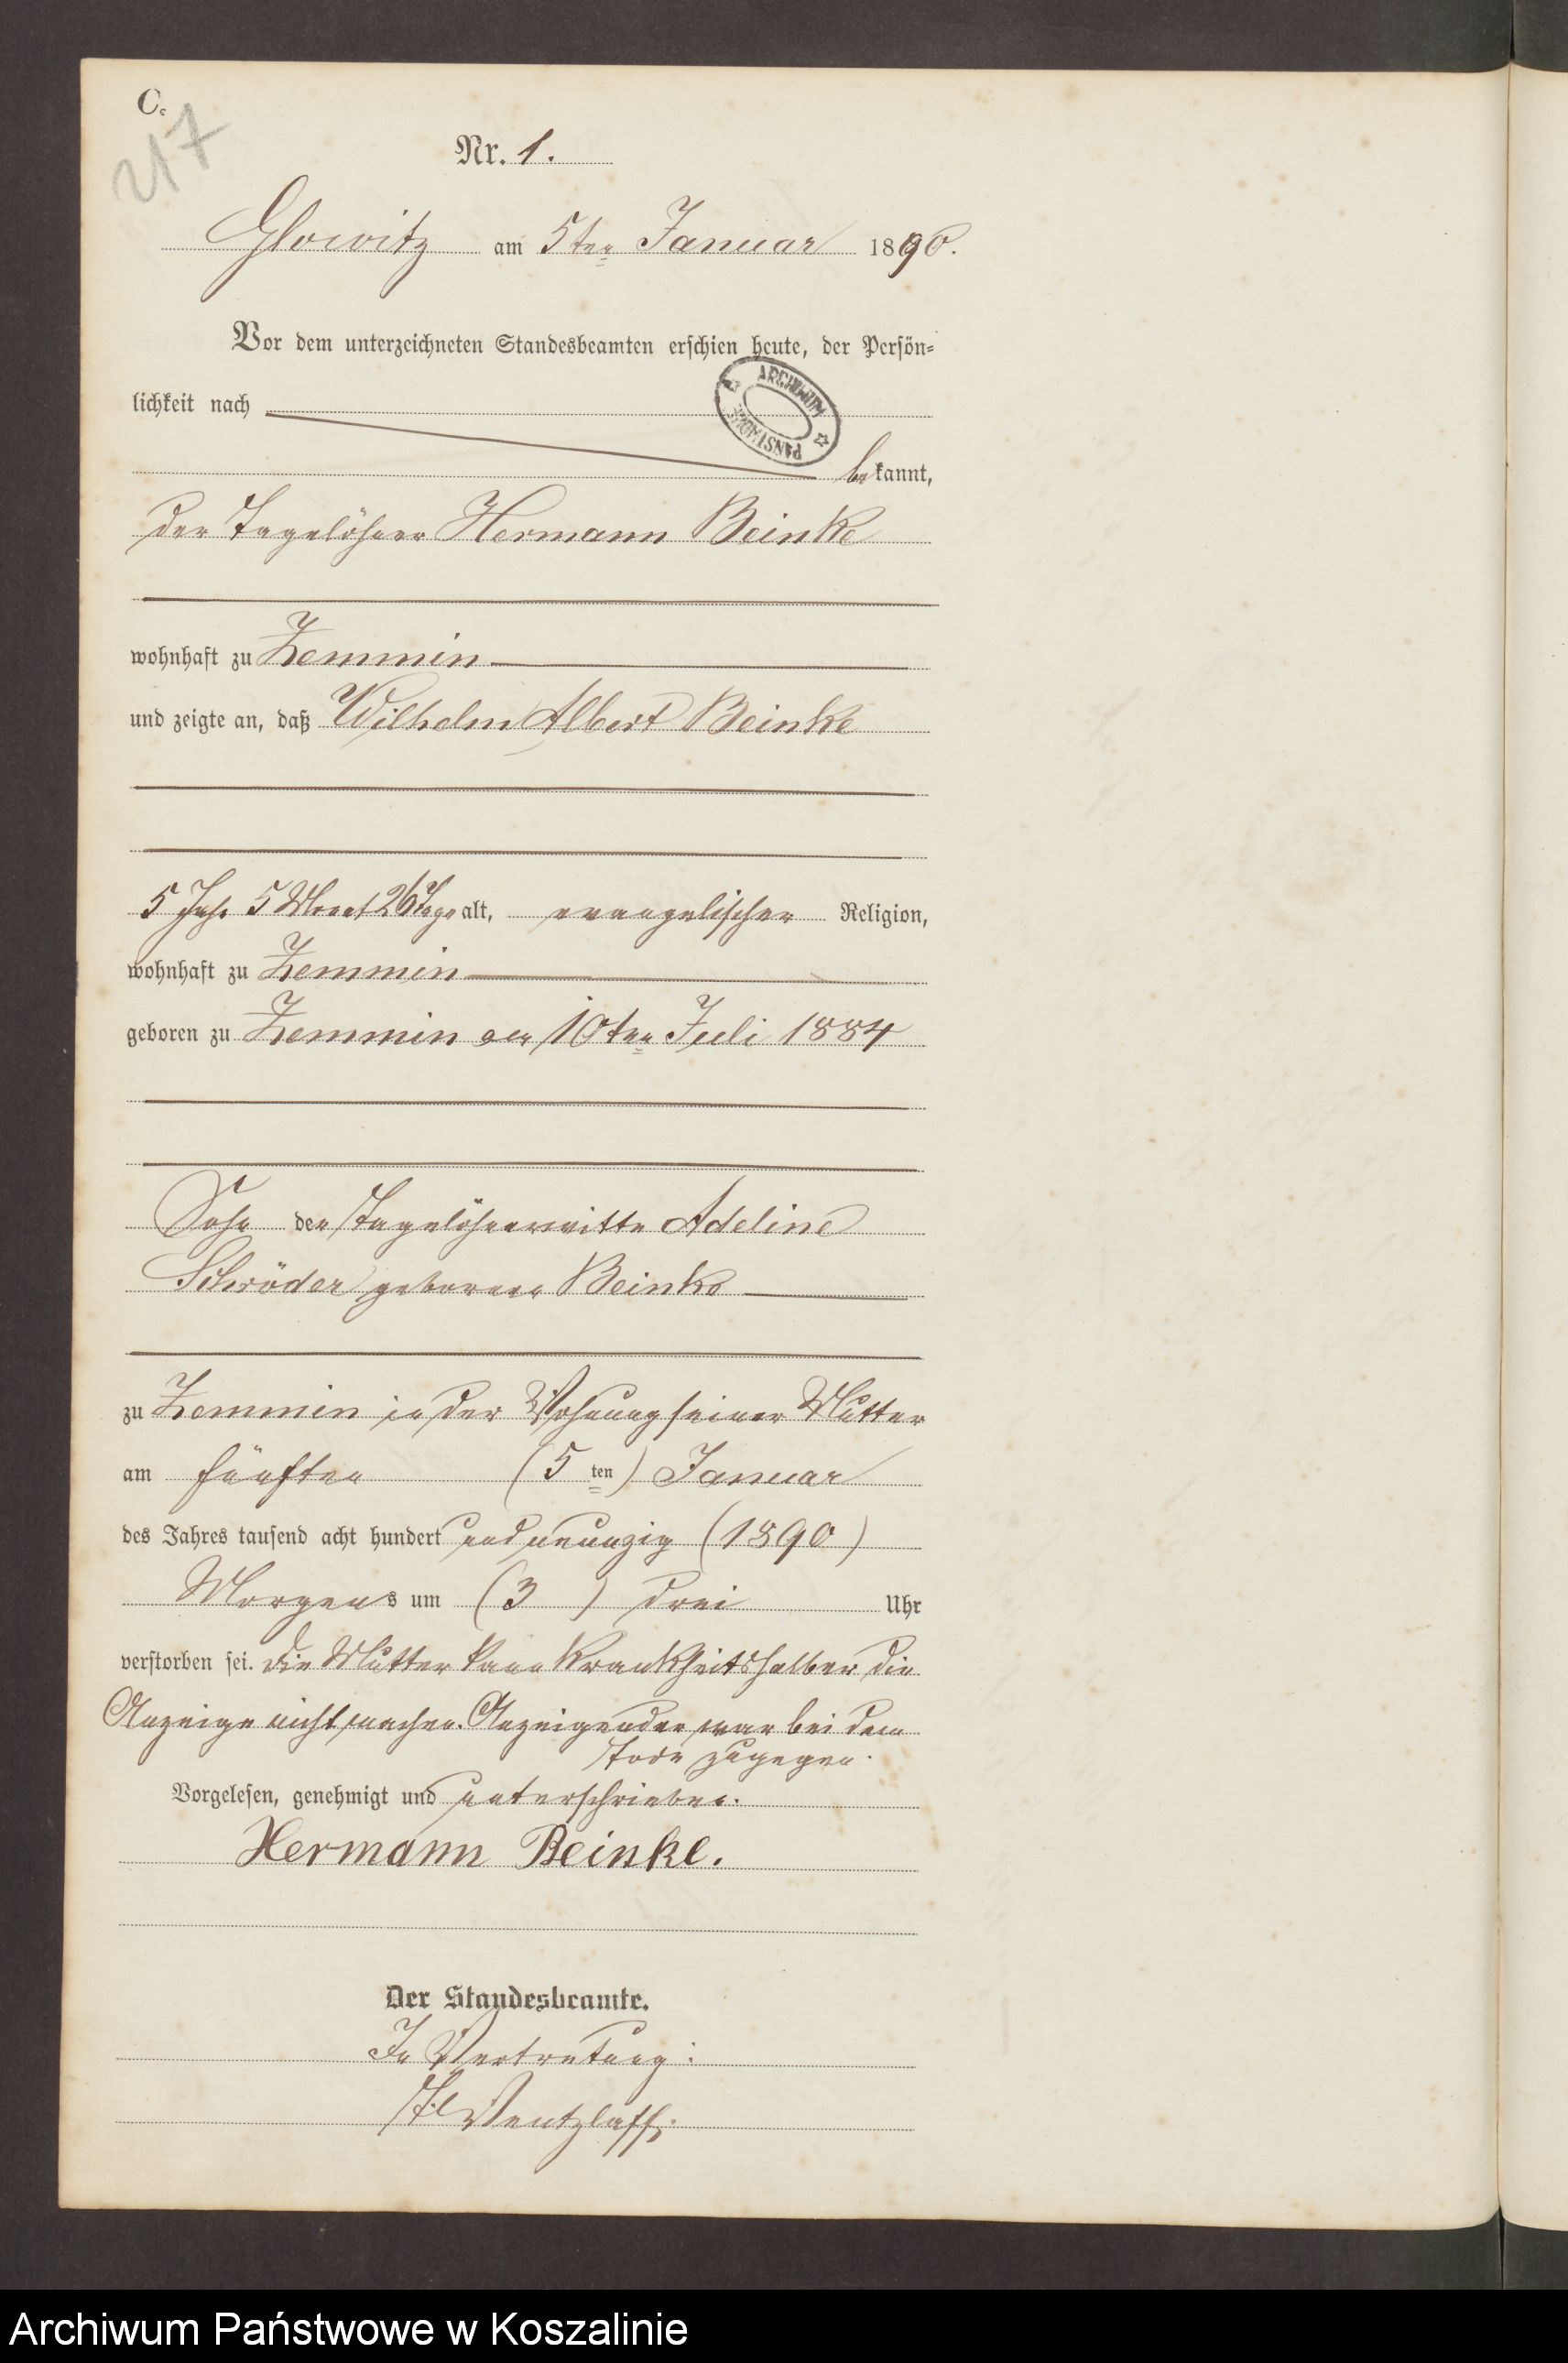 C.
217
Nr. 1.
Glowitz am 5ten Januar 1890.
Vor dem unterzeichneten Standesbeamten erschien heute, der Persön-
lichkeit nach
ARCHIWUM PAŃSTWOWE
bekannt,
der Tagelöhner Hermann Beinke
wohnhaft zu Zemmin
und zeigte an, daß Wilhelm Albert Beinke
5 Jahr 5 Monat 26 Tage alt, evangelischer Religion,
wohnhaft zu Zemmin
geboren zu Zemmin am 10ten Juli 1884
Sohn der Tagelöhnerwittwe Adeline
Schröder geborenen Beinke
zu Zemmin in der Wohnung seiner Mutter
am fünften (5 ten) Januar
des Jahres tausend acht hundert und neunzig (1890)
Morgens um (3) drei Uhr
verstorben sei. Die Mutter kann Krankheitshalber die
Anzeige nicht machen. Anzeigender war bei dem
Tode zugegen.
Vorgelesen, genehmigt und unterschrieben.
Hermann Beinke.
Der Standesbeamte.
In Vertretung:
Wentzlaff.
Archiwum Państwowe w Koszalinie